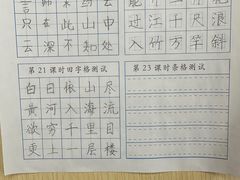 只在此山中
云深不知处
过江千尺浪
入竹万竿斜
第21课时田字格测试
白日依山尽
黄河入海流
欲穷千里目
更上一层楼
第23课时条格测试